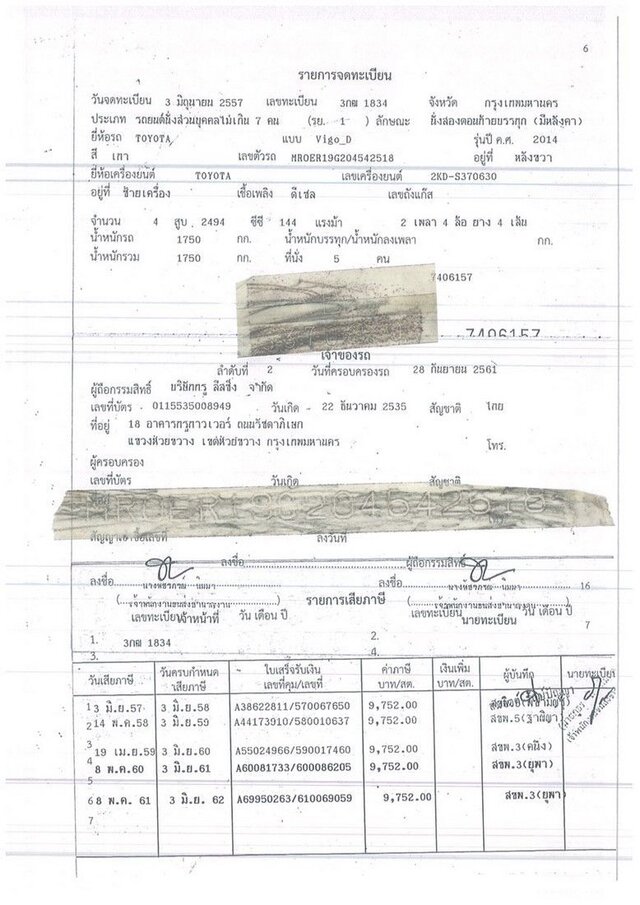 6
รายการจดทะเบียน
วันจดทะเบียน 3 มิถุนายน 2557 เลขทะเบียน 3กฒ 1834 จังหวัด กรุงเทพมหานคร
ประเภท รถยนต์นั่งส่วนบุคคลไม่เกิน 7 คน (รย. 1 ) ลักษณะ นั่งสองตอนท้ายบรรทุก (มีหลังคา)
ยี่ห้อรถ TOYOTA แบบ Vigo_D รุ่นปี ค.ศ. 2014
สี เทา เลขตัวรถ MROER19G204542518 อยู่ที่ หลังขวา
ยี่ห้อเครื่องยนต์ TOYOTA เลขเครื่องยนต์ 2KD-S370630
อยู่ที่ ซ้ายเครื่อง เชื้อเพลิง ดีเซล เลขถังแก๊ส
จำนวน 4 สูบ 2494 ซีซี 144 แรงม้า 2 เพลา 4 ล้อ ยาง 4 เส้น
น้ำหนักรถ 1750 กก. น้ำหนักบรรทุก/น้ำหนักลงเพลา กก.
น้ำหนักรวม 1750 กก. ที่นั่ง 5 คน
7406157
7406157
เจ้าของรถ
ลำดับที่ 2 วันที่ครอบครองรถ 28 กันยายน 2561
ผู้ถือกรรมสิทธิ์ บริษัทกรุ๊ ลีสซิ่ง จำกัด
เลขที่บัตร 0115535008949 วันเกิด 22 ธันวาคม 2535 สัญชาติ ไทย
ที่อยู่ 18 อาคารกรุ๊ทาวเวอร์ ถนนรัชดาภิเษก
แขวงห้วยขวาง เขตห้วยขวาง กรุงเทพมหานคร โทร.
ผู้ครอบครอง
เลขที่บัตร วันเกิด สัญชาติ
MROER19G204542518
ลงวันที่
ลงชื่อ ผู้ถือกรรมสิทธิ์
ลงชื่อ ลงชื่อ 16
(เจ้าพนักงานขนส่งชำนาญงาน) รายการเสียภาษี (เจ้าพนักงานขนส่งชำนาญงาน)
เลขทะเบียน เจ้าหน้าที่ วัน เดือน ปี เลขทะเบียน นายทะเบียน วัน เดือน ปี 7
1. 3กฒ 1834 2.
3. 4.
วันเสียภาษี วันครบกำหนดเสียภาษี ใบเสร็จรับเงิน เลขที่คุม/เลขที่ ค่าภาษี บาท/สต. เงินเพิ่ม บาท/สต. ผู้บันทึก นายทะเบียน
1 3 มิ.ย.57 3 มิ.ย.58 A38622811/570067650 9,752.00
2 14 พ.ค.58 3 มิ.ย.59 A44173910/580010637 9,752.00 สขพ.5(ฐานิญา
3 19 เม.ย.59 3 มิ.ย.60 A55024966/590017460 9,752.00 สขพ.3(คนึง)
4 8 พ.ค.60 3 มิ.ย.61 A60081733/600086205 9,752.00 สขพ.3(ยุพา)
5
6 8 พ.ค. 61 3 มิ.ย. 62 A69950263/610069059 9,752.00 สขพ.3(ยุพา)
7